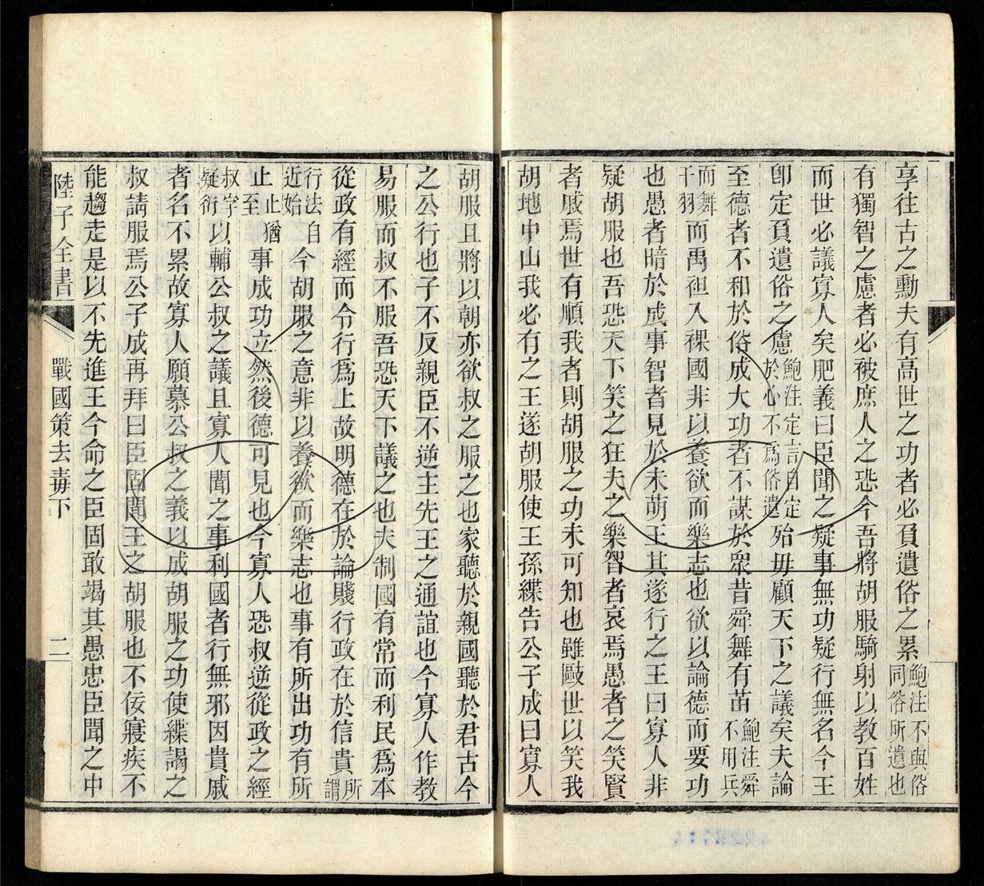 享往古之勳夫有高世之功者必負遺俗之累鮑注不與俗同俗所遺也
有獨智之慮者必被庶人之恐今吾將胡服騎射以教百姓
而世必議寡人矣肥義曰臣聞之疑事無功疑行無名今王
卽定負遺俗之慮鮑注定言自定於心不爲俗遺殆毋顧天下之議矣夫論
至德者不和於俗成大功者不謀於衆昔舜舞有苗鮑注舜不用兵
而舞干羽而禹袒入裸國非以養欲而樂志也欲以論德而要功
也愚者暗於成事智者見於未萌王其遂行之王曰寡人非
疑胡服也吾恐天下笑之狂夫之樂智者哀焉愚者之笑賢
者戚焉世有順我者則胡服之功未可知也雖敺世以笑我
胡地中山我必有之王遂胡服使王孫緤告公子成曰寡人
胡服且將以朝亦欲叔之服之也家聽於親國聽於君古今
之公行也子不反親臣不逆主先王之通誼也今寡人作教
易服而叔不服吾恐天下議之也夫制國有常而利民爲本
從政有經而令行爲上故明德在於論賤行政在於信貴所謂
行法自近始今胡服之意非以養欲而樂志也事有所出功有所
止止猶至事成功立然後德可見也今寡人恐叔逆從政之經
叔字疑衍以輔公叔之議且寡人聞之事利國者行無邪因貴戚
者名不累故寡人願慕公叔之義以成胡服之功使緤謁之
叔請服焉公子成再拜曰臣固聞王之胡服也不佞寢疾不
能趨走是以不先進王今命之臣固敢竭其愚忠臣聞之中
陸子全書
戰國策去毒下
二